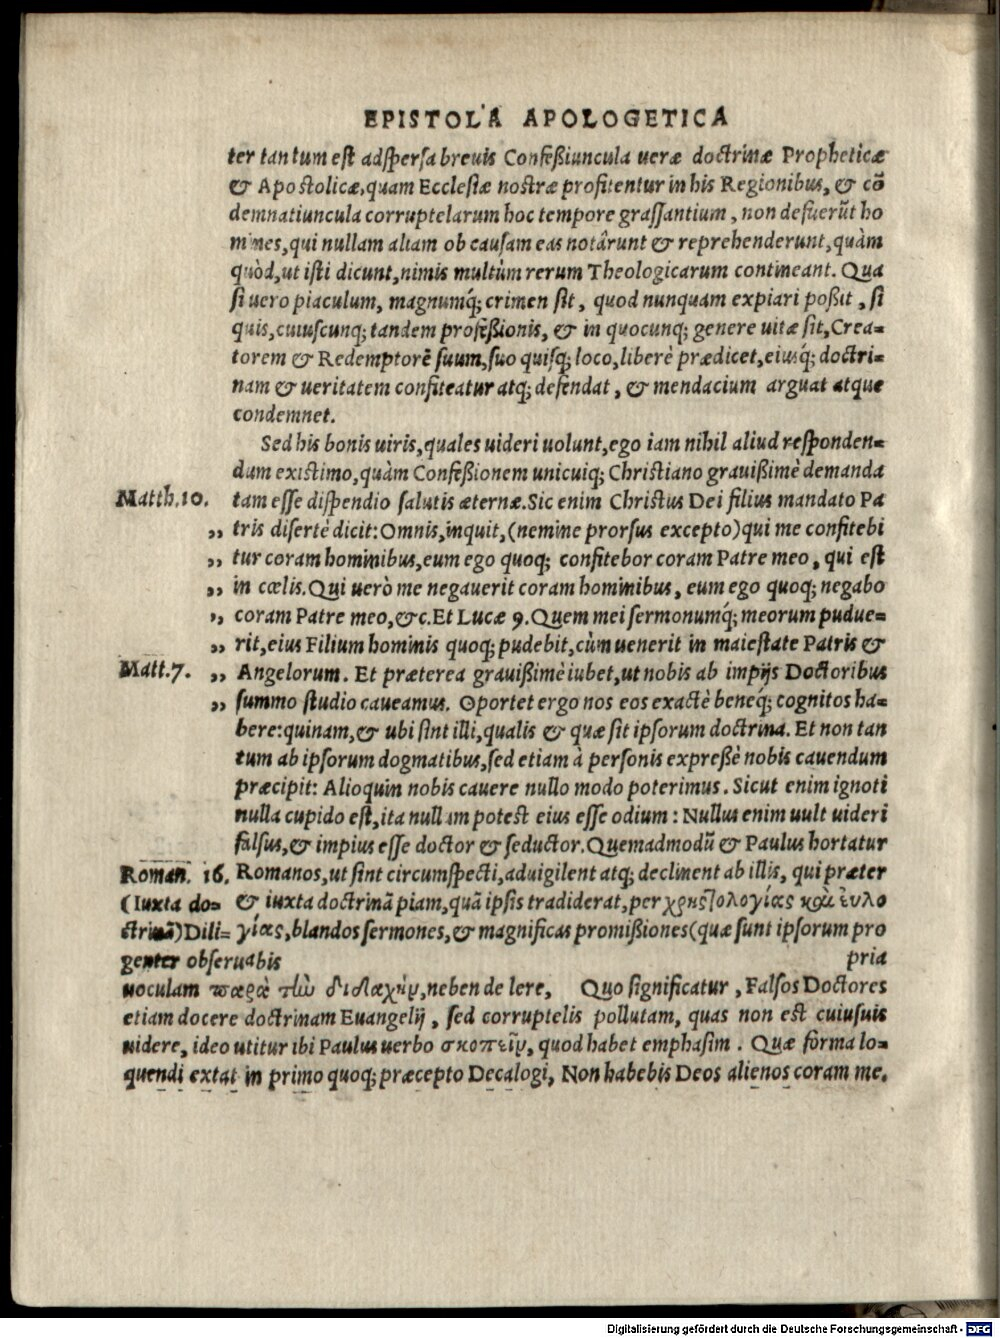 EPISTOLA APOLOGETICA
ter tantum est adspersa brevis Confeßiuncula ueræ doctrinæ Propheticæ
& Apostolicæ, quam Ecclesiæ nostræ profitentur in his Regionibus, & cõ
demnatiuncula corruptelarum hoc tempore grassantium, non defuerũt ho
mines, qui nullam aliam ob causam eas notârunt & reprehenderunt, quàm
quòd, ut isti dicunt, nimis multùm rerum Theologicarum contineant. Qua
si uero piaculum, magnumq́; crimen sit, quod nunquam expiari poßit, si
quis, cuiuscunq; tandem profeßionis, & in quocunq; genere uitæ sit, Crea=
torem & Redemptorẽ suum, suo quisq; loco, liberè prædicet, eiusq́; doctri=
nam & ueritatem confiteatur atq; defendat, & mendacium arguat atque
condemnet.
Sed his bonis uiris, quales uideri uolunt, ego iam nihil aliud responden=
dum existimo, quàm Confeßionem unicuiq; Christiano grauißimè demanda
Matth. 10. tam esse dispendio salutis æternæ. Sic enim Christus Dei filius mandato Pa
„ tris disertè dicit: Omnis, inquit, (nemine prorsus excepto) qui me confitebi
„ tur coram hominibus, eum ego quoq; confitebor coram Patre meo, qui est
„ in cœlis. Qui uerò me negauerit coram hominibus, eum ego quoq; negabo
„ coram Patre meo, &c. Et Lucæ 9. Quem mei sermonumq́; meorum pudue=
„ rit, eius Filium hominis quoq; pudebit, cùm uenerit in maiestate Patris &
Matt. 7. „ Angelorum. Et præterea grauißimè iubet, ut nobis ab impijs Doctoribus
„ summo studio caueamus. Oportet ergo nos eos exactè beneq́; cognitos ha=
bere: quinam, & ubi sint illi, qualis & quæ sit ipsorum doctrina. Et non tan
tum ab ipsorum dogmatibus, sed etiam à personis expreßè nobis cauendum
præcipit: Alioquin nobis cauere nullo modo poterimus. Sicut enim ignoti
nulla cupido est, ita nullam potest eius esse odium: Nullus enim uult uideri
falsus, & impius esse doctor & seductor. Quemadmodũ & Paulus hortatur
Roman. 16. Romanos, ut sint circumspecti, aduigilent atq; declinent ab illis, qui præter
(Iuxta do= & iuxta doctrinã piam, quã ipsis tradiderat, per χρηστολογίας καὶ ἐυλο
ctrinã) Dili= γίας, blandos sermones, & magnificas promißiones (quæ sunt ipsorum pro
genter obseruabis pria
uoculam παρὰ τὼ διδαχὴν, neben de lere, Quo significatur, Falsos Doctores
etiam docere doctrinam Euangelij, sed corruptelis pollutam, quas non est cuiusuis
uidere, ideo utitur ibi Paulus uerbo σκοπεῖν, quod habet emphasim. Quæ forma lo=
quendi extat in primo quoq; præcepto Decalogi, Non habebis Deos alienos coram me.
Digitalisierung gefördert durch die Deutsche Forschungsgemeinschaft - DFG